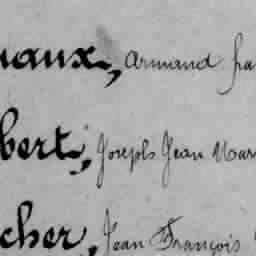 naux, Armand fra
bert, Joseph Jean Mar
cher, Jean François